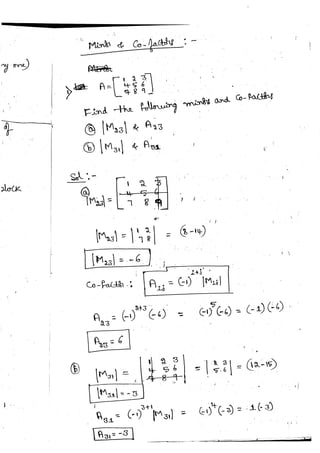 Minors & Co-factors : -
y one)
1) Let A = [1 2 3
4 5 6
7 8 9]
Find the following minors and Co-factors
ⓐ |M23| & A23
ⓑ |M31| & A31
Sol :-
ⓐ
|M23| = [1 2 3
4 5 6
7 8 9]
|M23| = |1 2
7 8| = (8-14)
|M23| = -6
Co-factors : Aij = (-1)^i+j |Mij|
A23 = (-1)^2+3 (-6) = (-1)^5 (-6) = (-1)(-6)
A23 = 6
ⓑ
|M31| = |1 2 3
4 5 6
7 8 9| = |2 3
5 6| = (12-15)
|M31| = -3
A31 = (-1)^3+1 |M31| = (-1)^4 (-3) = 1(-3)
A31 = -3